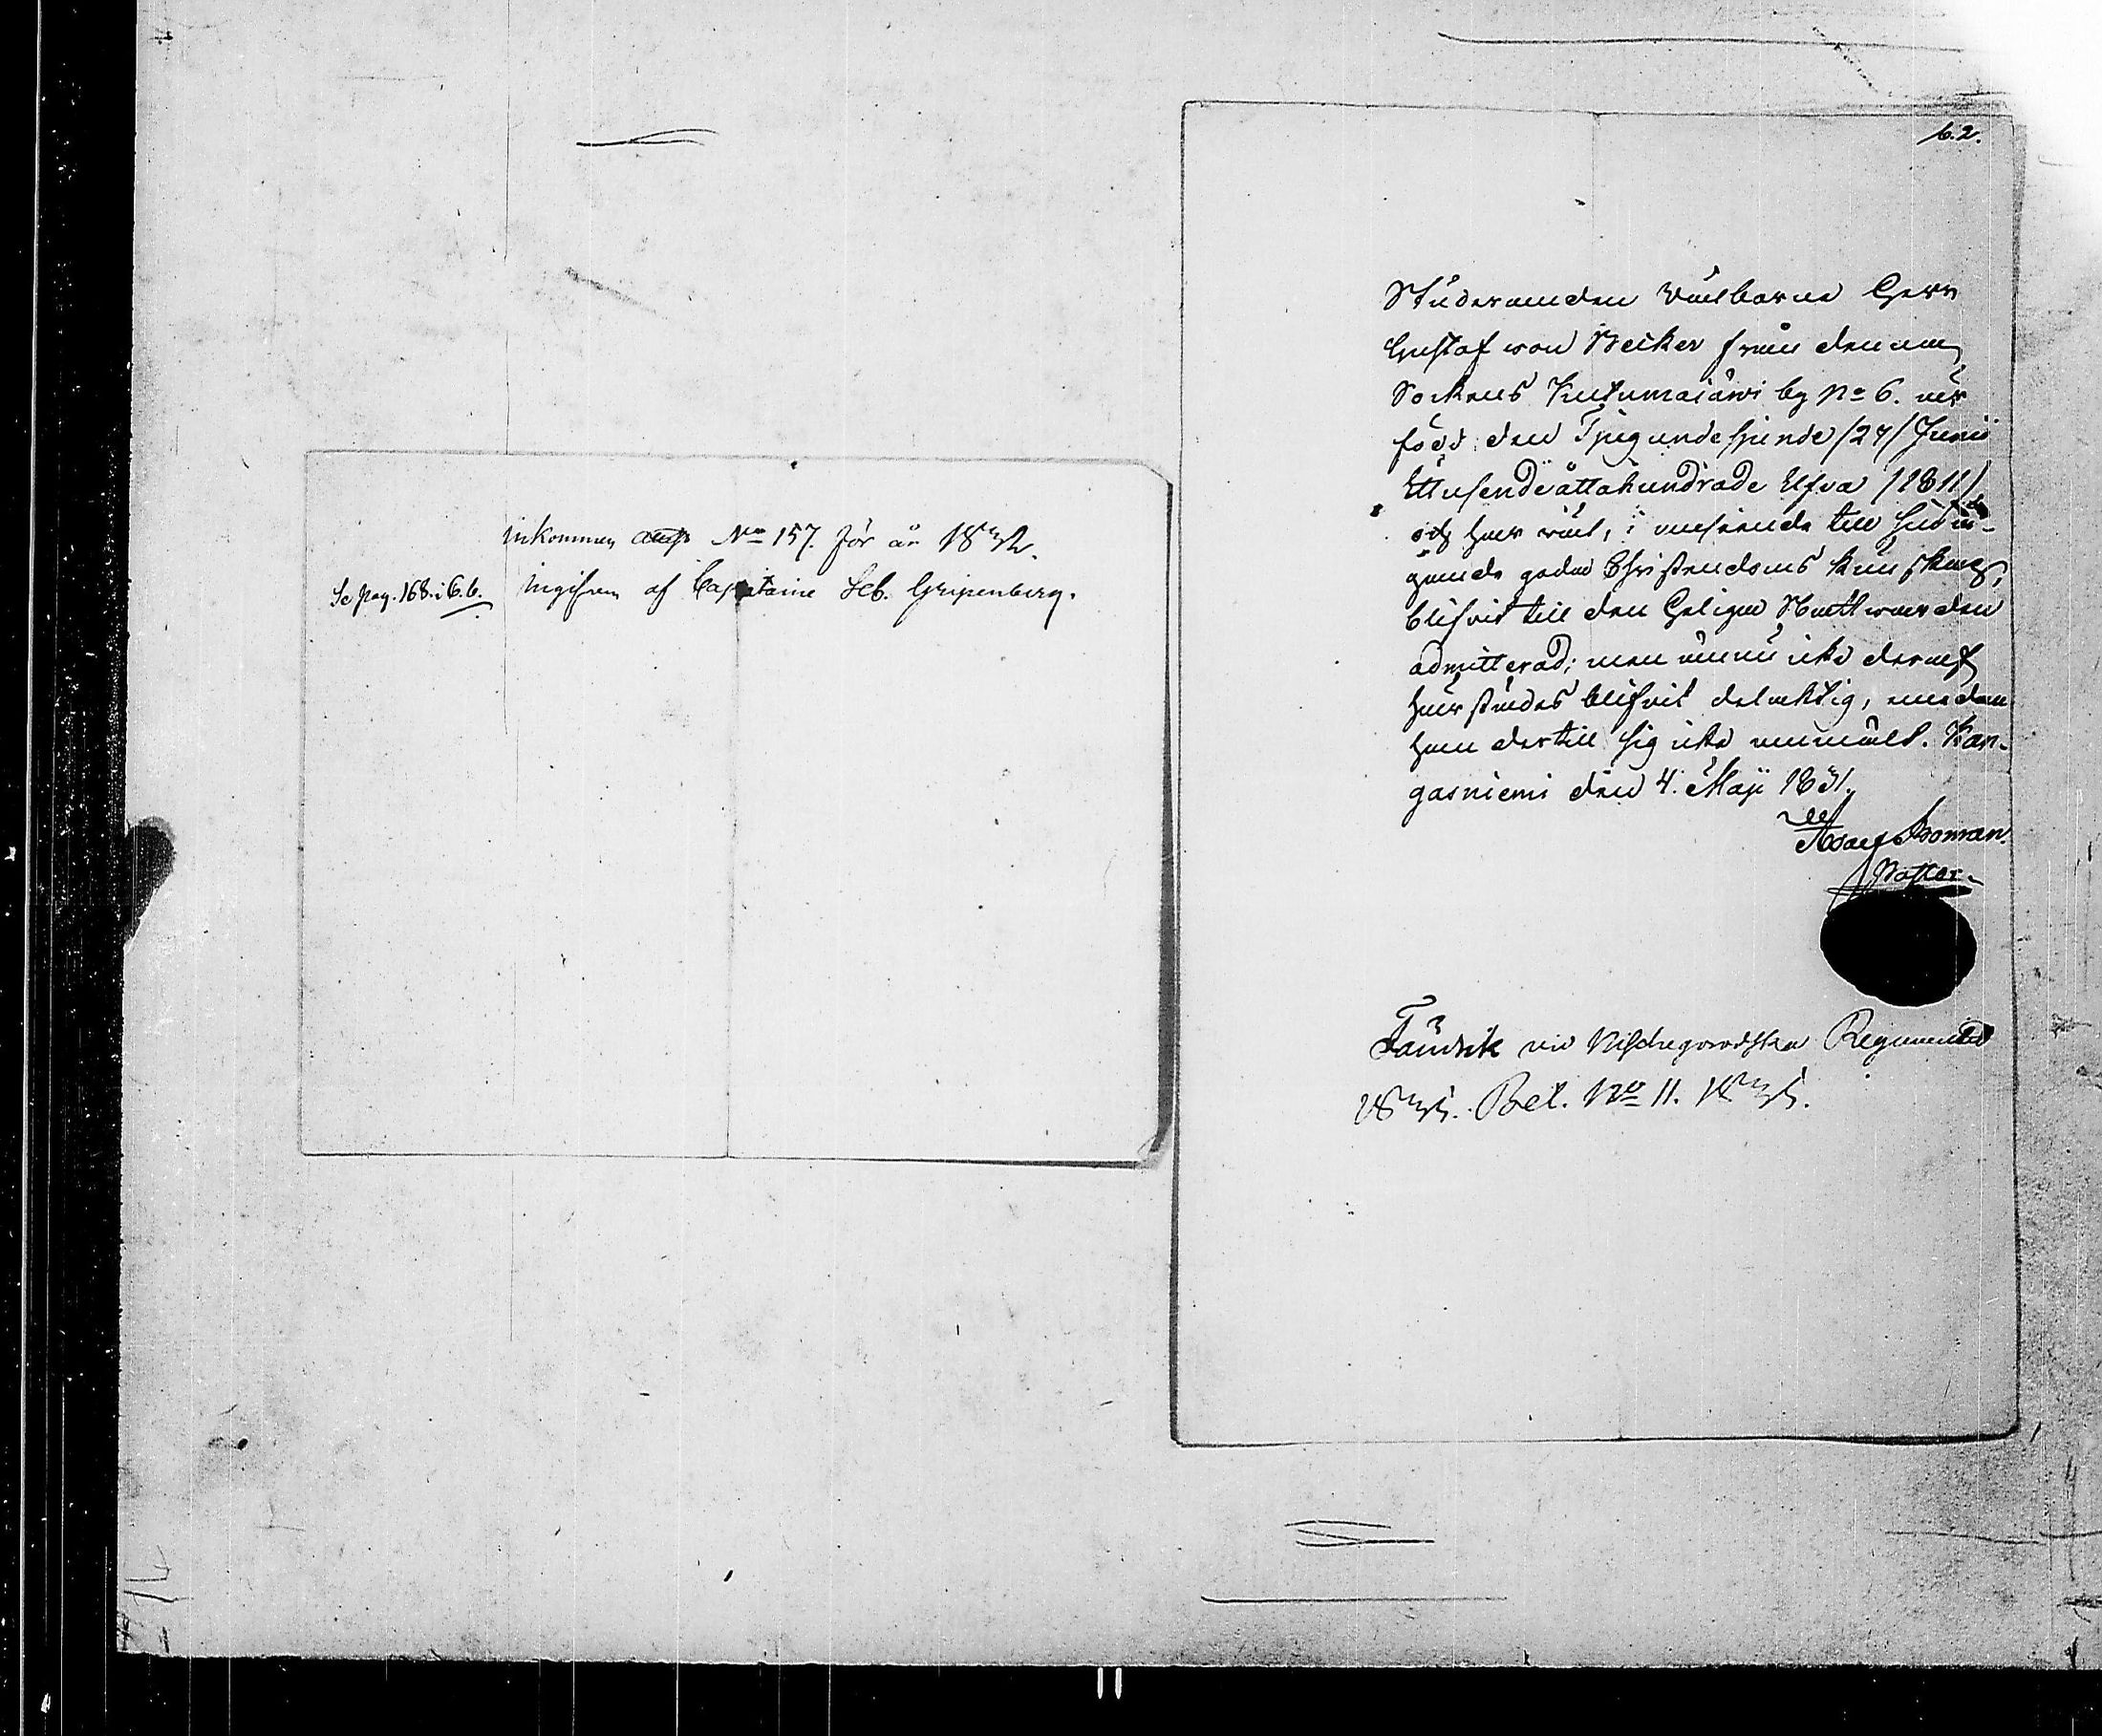 Inkommen No 157. för år 1832.
Se pag. 168. i 6.b. Ingifven af Capitaine Seb. Gripenberg.
62.
Studeranden Välborne Herr
Gustaf von Becker från denna
Sockens Kutumajärvi by No 6. är
född den Tjugundesjunde /27/ Junii
Ettusendeåttahundrade Elfva /1811/
och har väl, i anseende till sin ä-
gande goda Christendoms kunskap,
blifvit till den Heliga Nattvarden
admitterad; men ännu icke deraf
härstädes blifvit delaktig, emedan
han dertill sig icke anmält. Kan-
gasniemi den 4. Maji 1831.
Boman.
Pastor.
Fändrik vid Nischegorodska Regementet
1835. Bet. No 11. 1835.